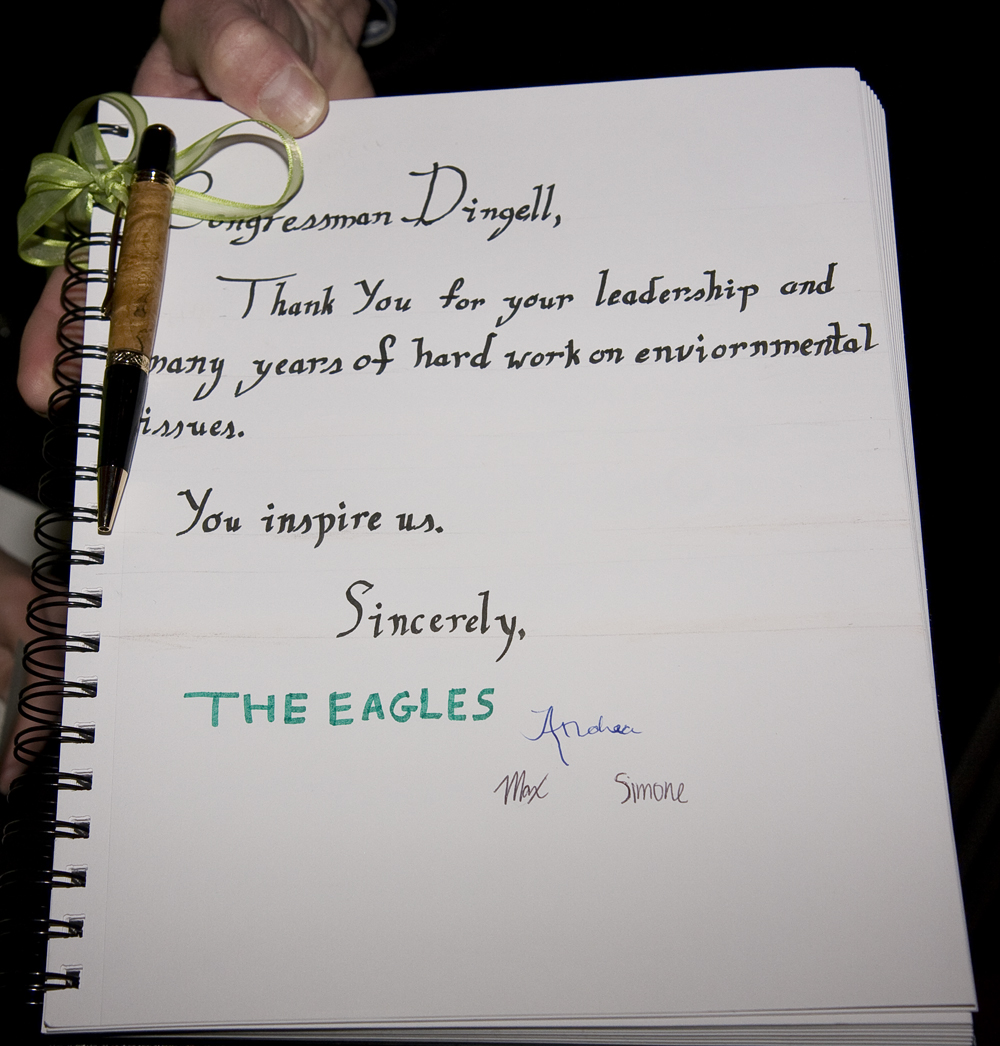 Congressman Dingell,
Thank You for your leadership and
many years of hard work on enviornmental
issues.
You inspire us.
Sincerely,
THE EAGLES
Andrea
Max Simone